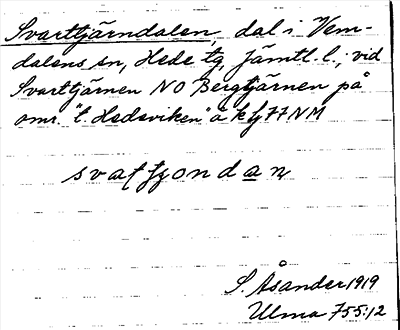 Svarttjärndalen, dal i Vem-
dalens sn, Hede tg, Jämtl. l.; vid
Svarttjärnen NO Bergtjärnen på
omr. "t. Hedeviken" å kbl 77 NM
svattjondan
S. Åsander 1919
Ulma 755:12